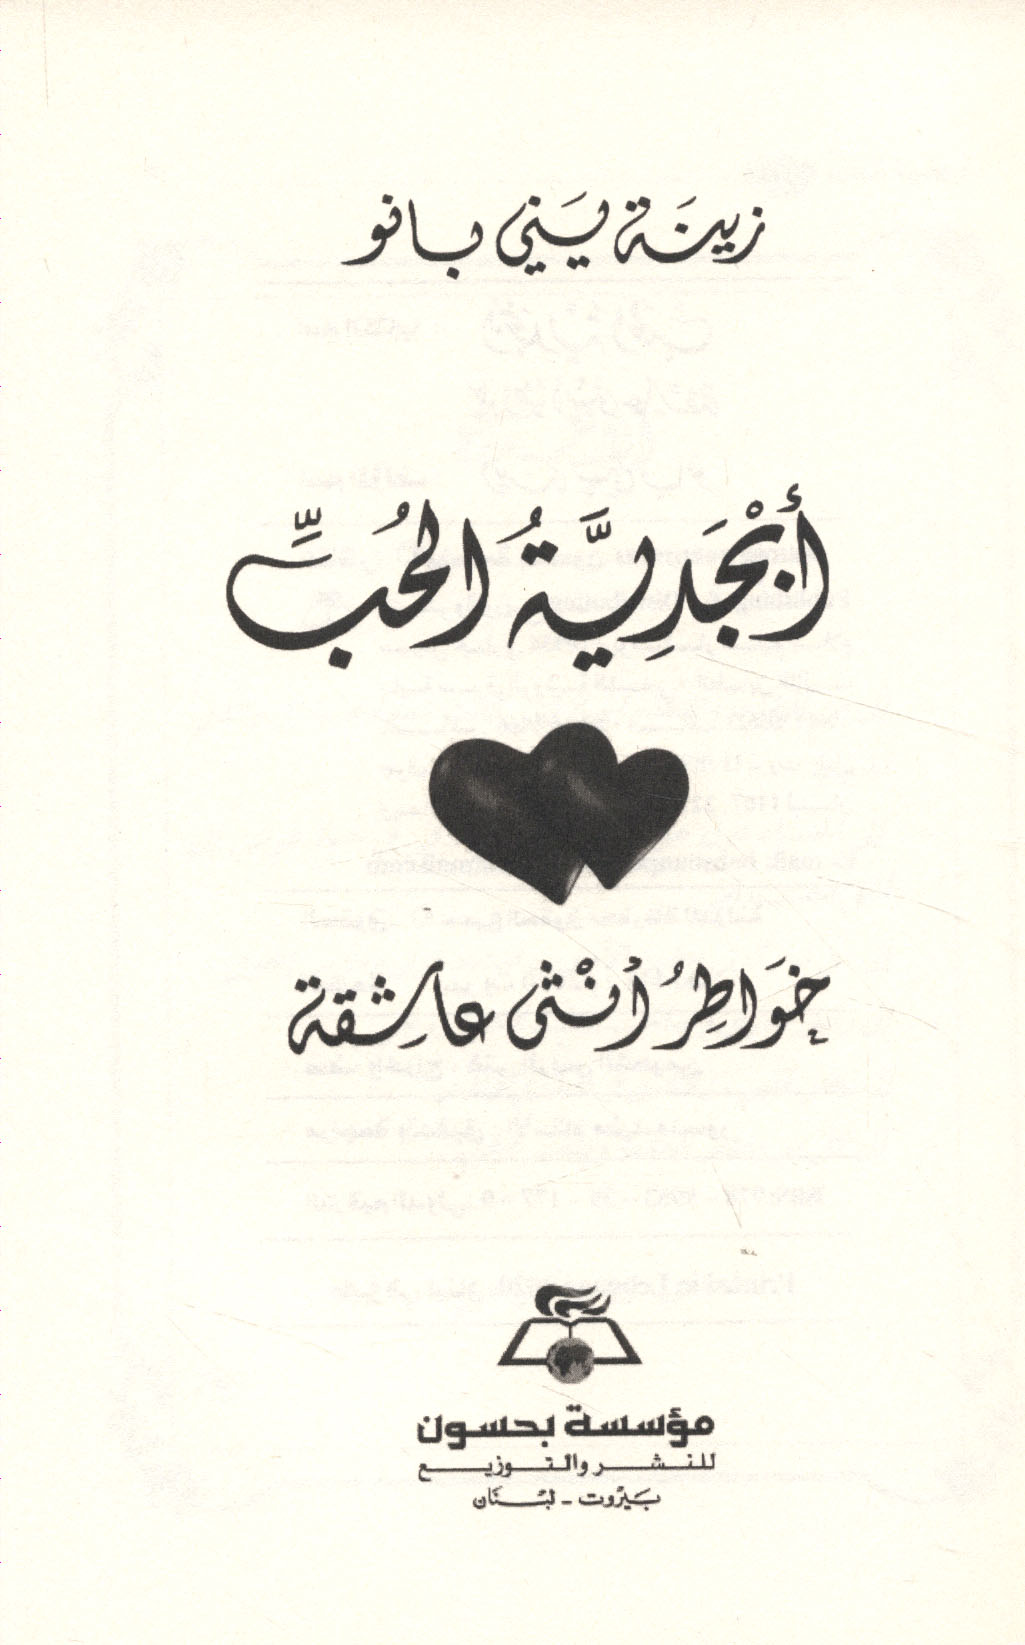 زينَة يَني بافو
أَبْجَدِيَّةُ الحُبِّ
خَوَاطِرُ أُنْثى عاشِقة
مؤسسة بحسون
للنشر والتوزيع
بَيْروت - لبْنَان